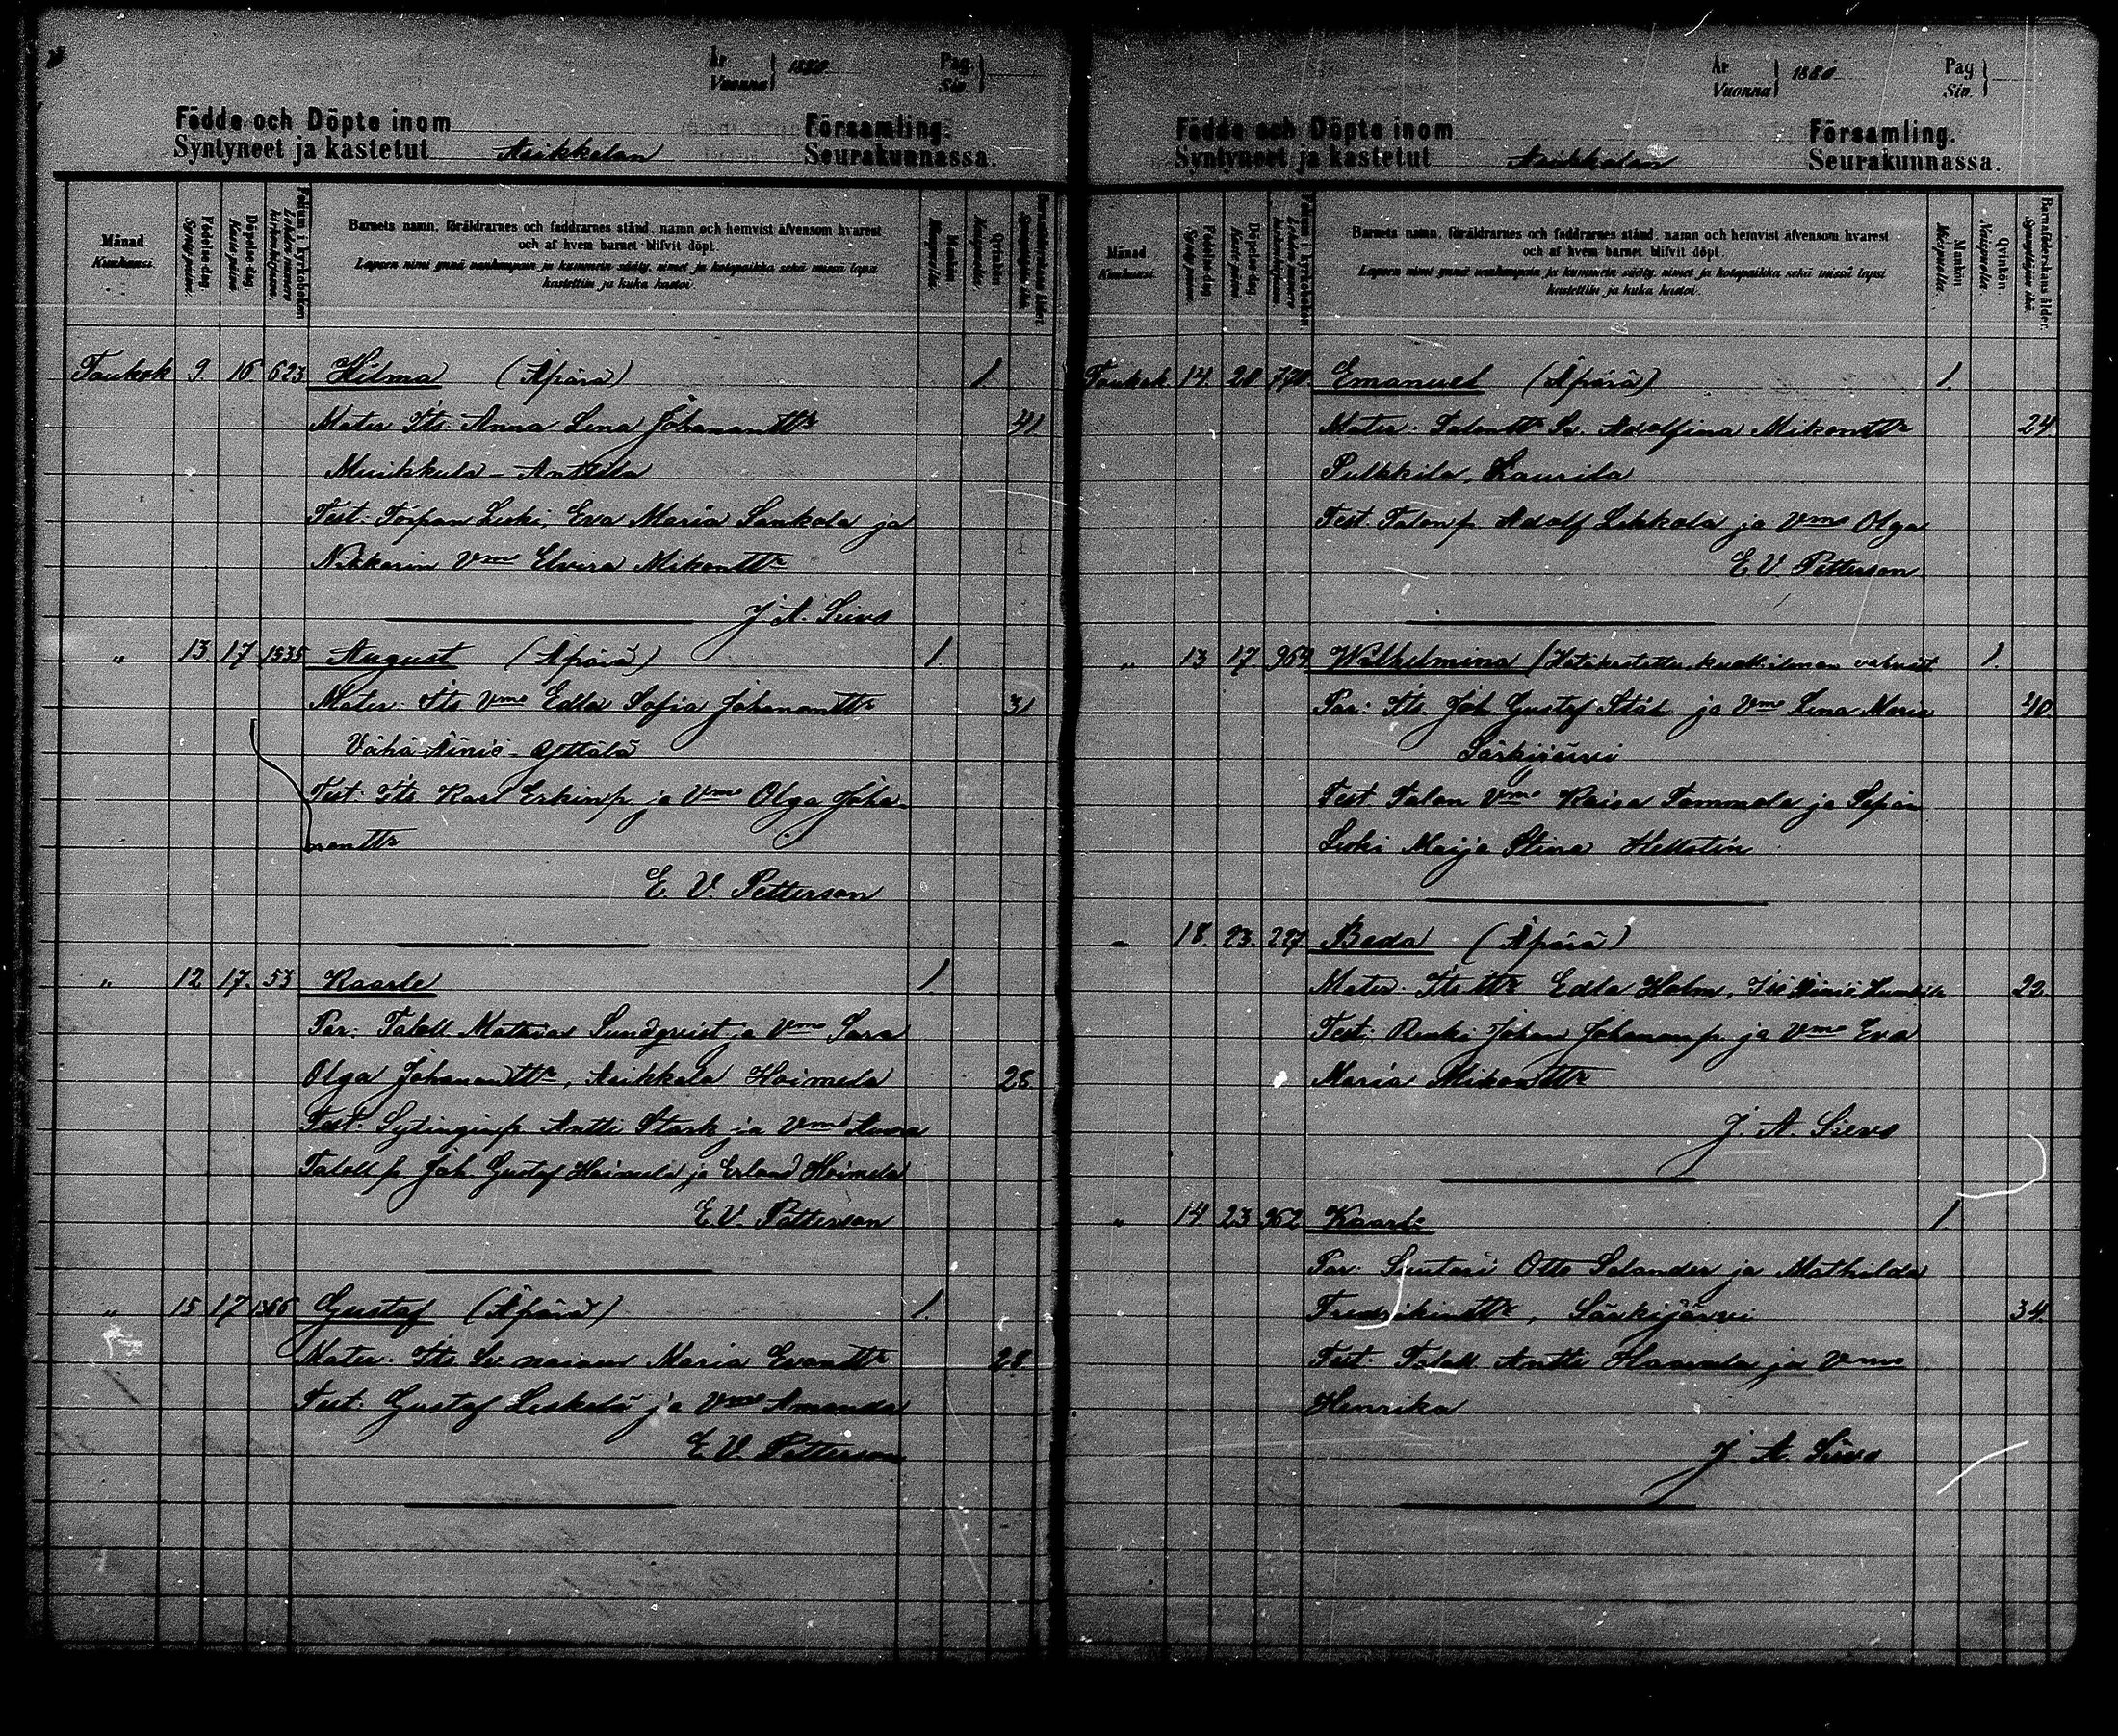 År
Vuonna } 1880
Pag.
Siv. }
Födde och Döpte inom Församling.
Syntyneet ja kastetut Asikkalan Seurakunnassa.
Månad.
Kuukausi.
Födelse-dag.
Syntymä päivä.
Döpelse-dag.
Kaste päivä.
Folium i kyrkoboken.
Lehden numero kirkonkirjassa.
Barnets namn, föräldrarnes och faddrarnes stånd, namn och hemvist äfvensom hvarest
och af hvem barnet blifvit döpt.
Lapsen nimi ynnä vanhempain ja kummein sääty, nimet ja kotopaikka sekä missä lapsi
kastettiin ja kuka kastoi.
Mankön
Miespuolia.
Qvinkön
Naispuolia.
Barnaföderskans ålder.
Synnyttäjän ikä.
Toukok 9. 16 623 Hilma (Äpärä) 1.
Mater Its. Anna Lena Johanantr 41
Muikkula - Anttila
Test: Torpan Leski, Eva Maria Sankola ja
Nikkarin Vmo Elvira Mikontr
J. A. Sievo
" 13. 17 1535 August (Äpärä) 1.
Mater. Its Vmo Edla Sofia Johanantr 31
Vähä Äiniö - Yttälä
Test: Its Karl Erkinp. ja Vmo Olga Joha-
nanttr
E. V. Petterson
" 12 17. 53 Kaarle 1.
Par: Taloll Mathias Sundqvist ja Vmo Sara
Olga Johananttr, Asikkala Hoimela 28
Test: Sytinginp. Antti Stark ja Vmo Anna
Taloll p. Joh. Gustaf Hoimela ja Erland Hoimela
E. V. Petterson
" 15 17 1366 Gustaf (Äpärä) 1.
Mater. Its Lv nainen Maria Evanttr 28
Test: Gustaf Leskelä ja Vmo Amanda
E. V. Petterson
År
Vuonna } 1880
Pag.
Siv. }
Födde och Döpte inom Församling.
Syntyneet ja kastetut Asikkalan Seurakunnassa.
Månad.
Kuukausi.
Födelse-dag.
Syntymä päivä.
Döpelse-dag.
Kaste päivä.
Folium i kyrkoboken.
Lehden numero kirkonkirjassa.
Barnets namn, föräldrarnes och faddrarnes stånd, namn och hemvist äfvensom hvarest
och af hvem barnet blifvit döpt.
Lapsen nimi ynnä vanhempain ja kummein sääty, nimet ja kotopaikka sekä missä lapsi
kastettiin ja kuka kastoi.
Mankön
Miespuolia.
Qvinkön.
Naispuolia.
Barnaföderskans ålder.
Synnyttäjän ikä.
Toukok 14. 20 770 Emanuel (Äpärä) 1.
Mater. Talonttr Lv. Adolfina Mikonttr 24
Pulkkila, Laurila
Test. Talonp. Adolf Lekkola ja Vmo Olga
E. V. Petterson
" 13 17 969 Wilhelmina (Hätäkastettu, kuoll. ilman vahvist 1.
Par: Its Joh Gustaf Ståhl ja Vmo Lena Maria 40.
Särkijärvi
Test. Talon Vmo Kaisa Tommola ja Sepän
Leski Maija Stina Hellstén
" 18. 23. 227 Beda (Äpärä)
Mater. Its ttr Edla Holm, Iso Äiniö 22.
Test: Renki Johan Johananp. ja Vmo Eva
Maria Mikonttr
J. A. Sievo
" 14 23 962 Kaarle 1.
Par: Suutari Otto Selander ja Mathilda
Fredrikinttr, Särkijärvi 34.
Test. Taloll Antti Haavala ja Vmo
Henrika
J. A. Sievo